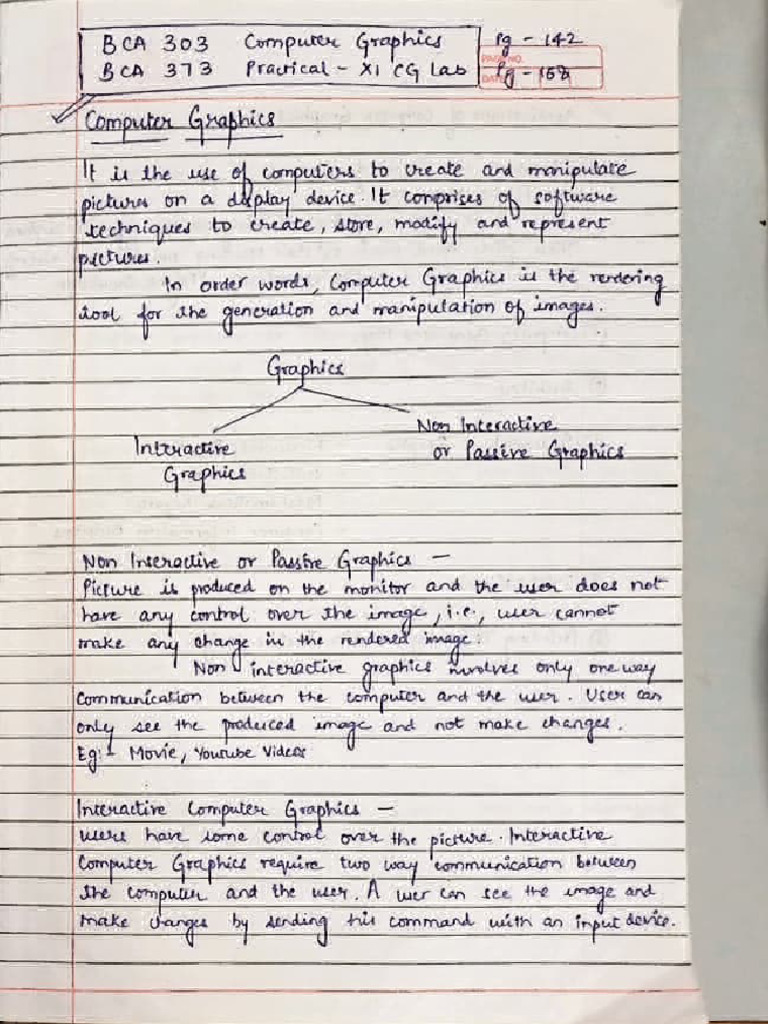 BCA 303 Computer Graphics Pg - 142
BCA 373 Practical - XI CG Lab Pg - 158
PAGE NO.
DATE
Computer Graphics
It is the use of computers to create and manipulate
pictures on a display device. It comprises of software
techniques to create, store, modify and represent
pictures.
In order words, Computer Graphics is the rendering
tool for the generation and manipulation of images.
Graphics
Non Interactive
or Passive Graphics
Interactive
Graphics
Non Interactive or Passive Graphics —
Picture is produced on the monitor and the user does not
have any control over the image, i.e., user cannot
make any change in the rendered image.
Non interactive graphics involves only one way
communication between the computer and the user. User can
only see the produced image and not make changes.
Eg:- Movie, Youtube Videos
Interactive Computer Graphics —
users have some control over the picture. Interactive
Computer Graphics require two way communication between
the computer and the user. A user can see the image and
make changes by sending his command with an input device.